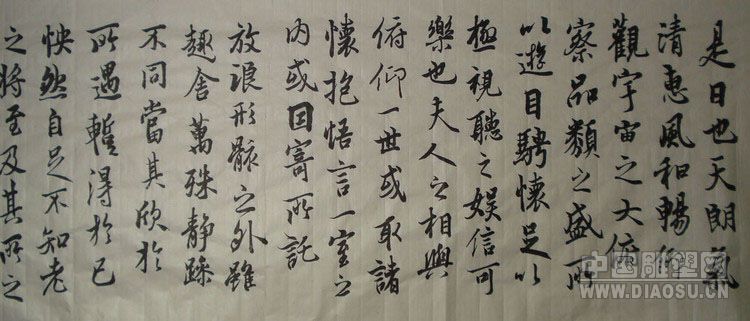 是日也天朗氣
清惠風和暢仰
觀宇宙之大俯
察品類之盛所
以遊目騁懷足以
極視聽之娛信可
樂也夫人之相與
俯仰一世或取諸
懷抱悟言一室之
內或因寄所託
放浪形骸之外雖
趣舍萬殊靜躁
不同當其欣於
所遇暫得於己
怏然自足不知老
之將至及其所之
中国雕塑网
WWW.DIAOSU.CN